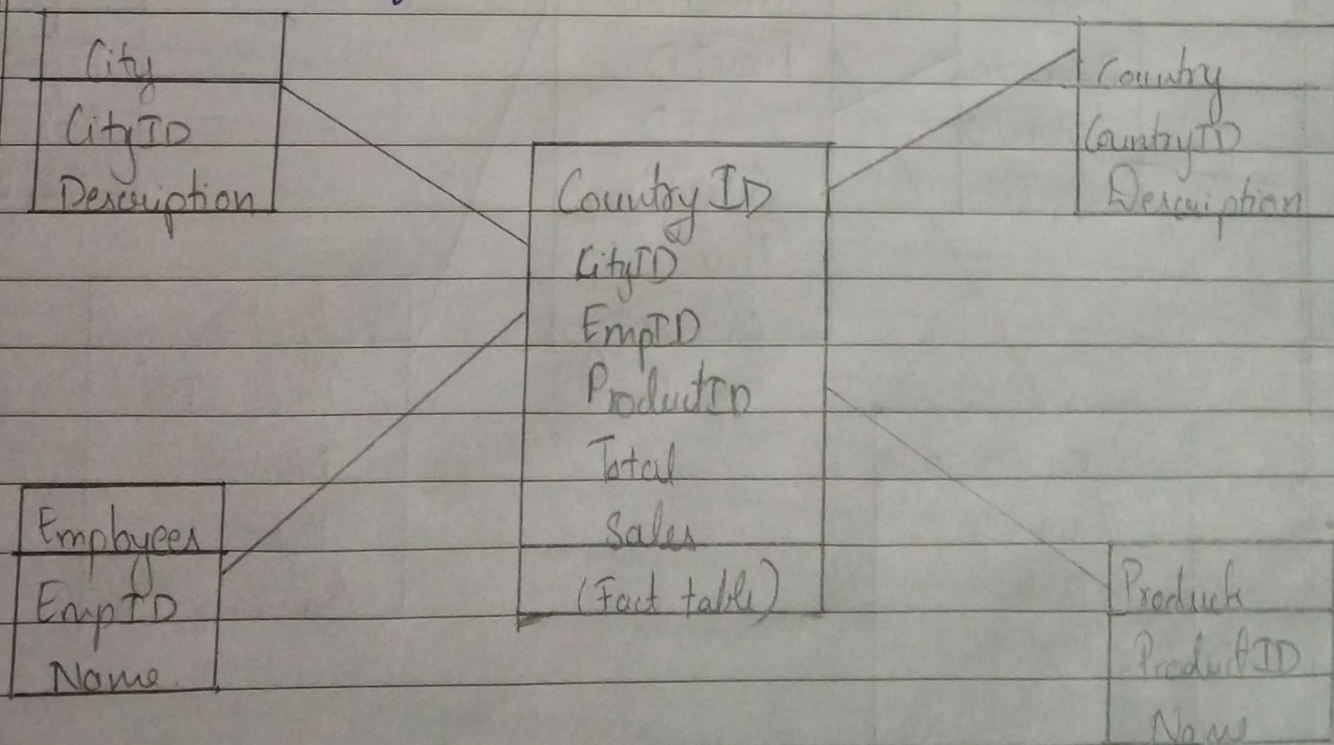 City
CityID
Description
Country
CountryID
Description
Country ID
CityID
EmpID
ProductID
Total
Sales
(Fact table)
Employees
EmpID
Name
Product
ProductID
Name